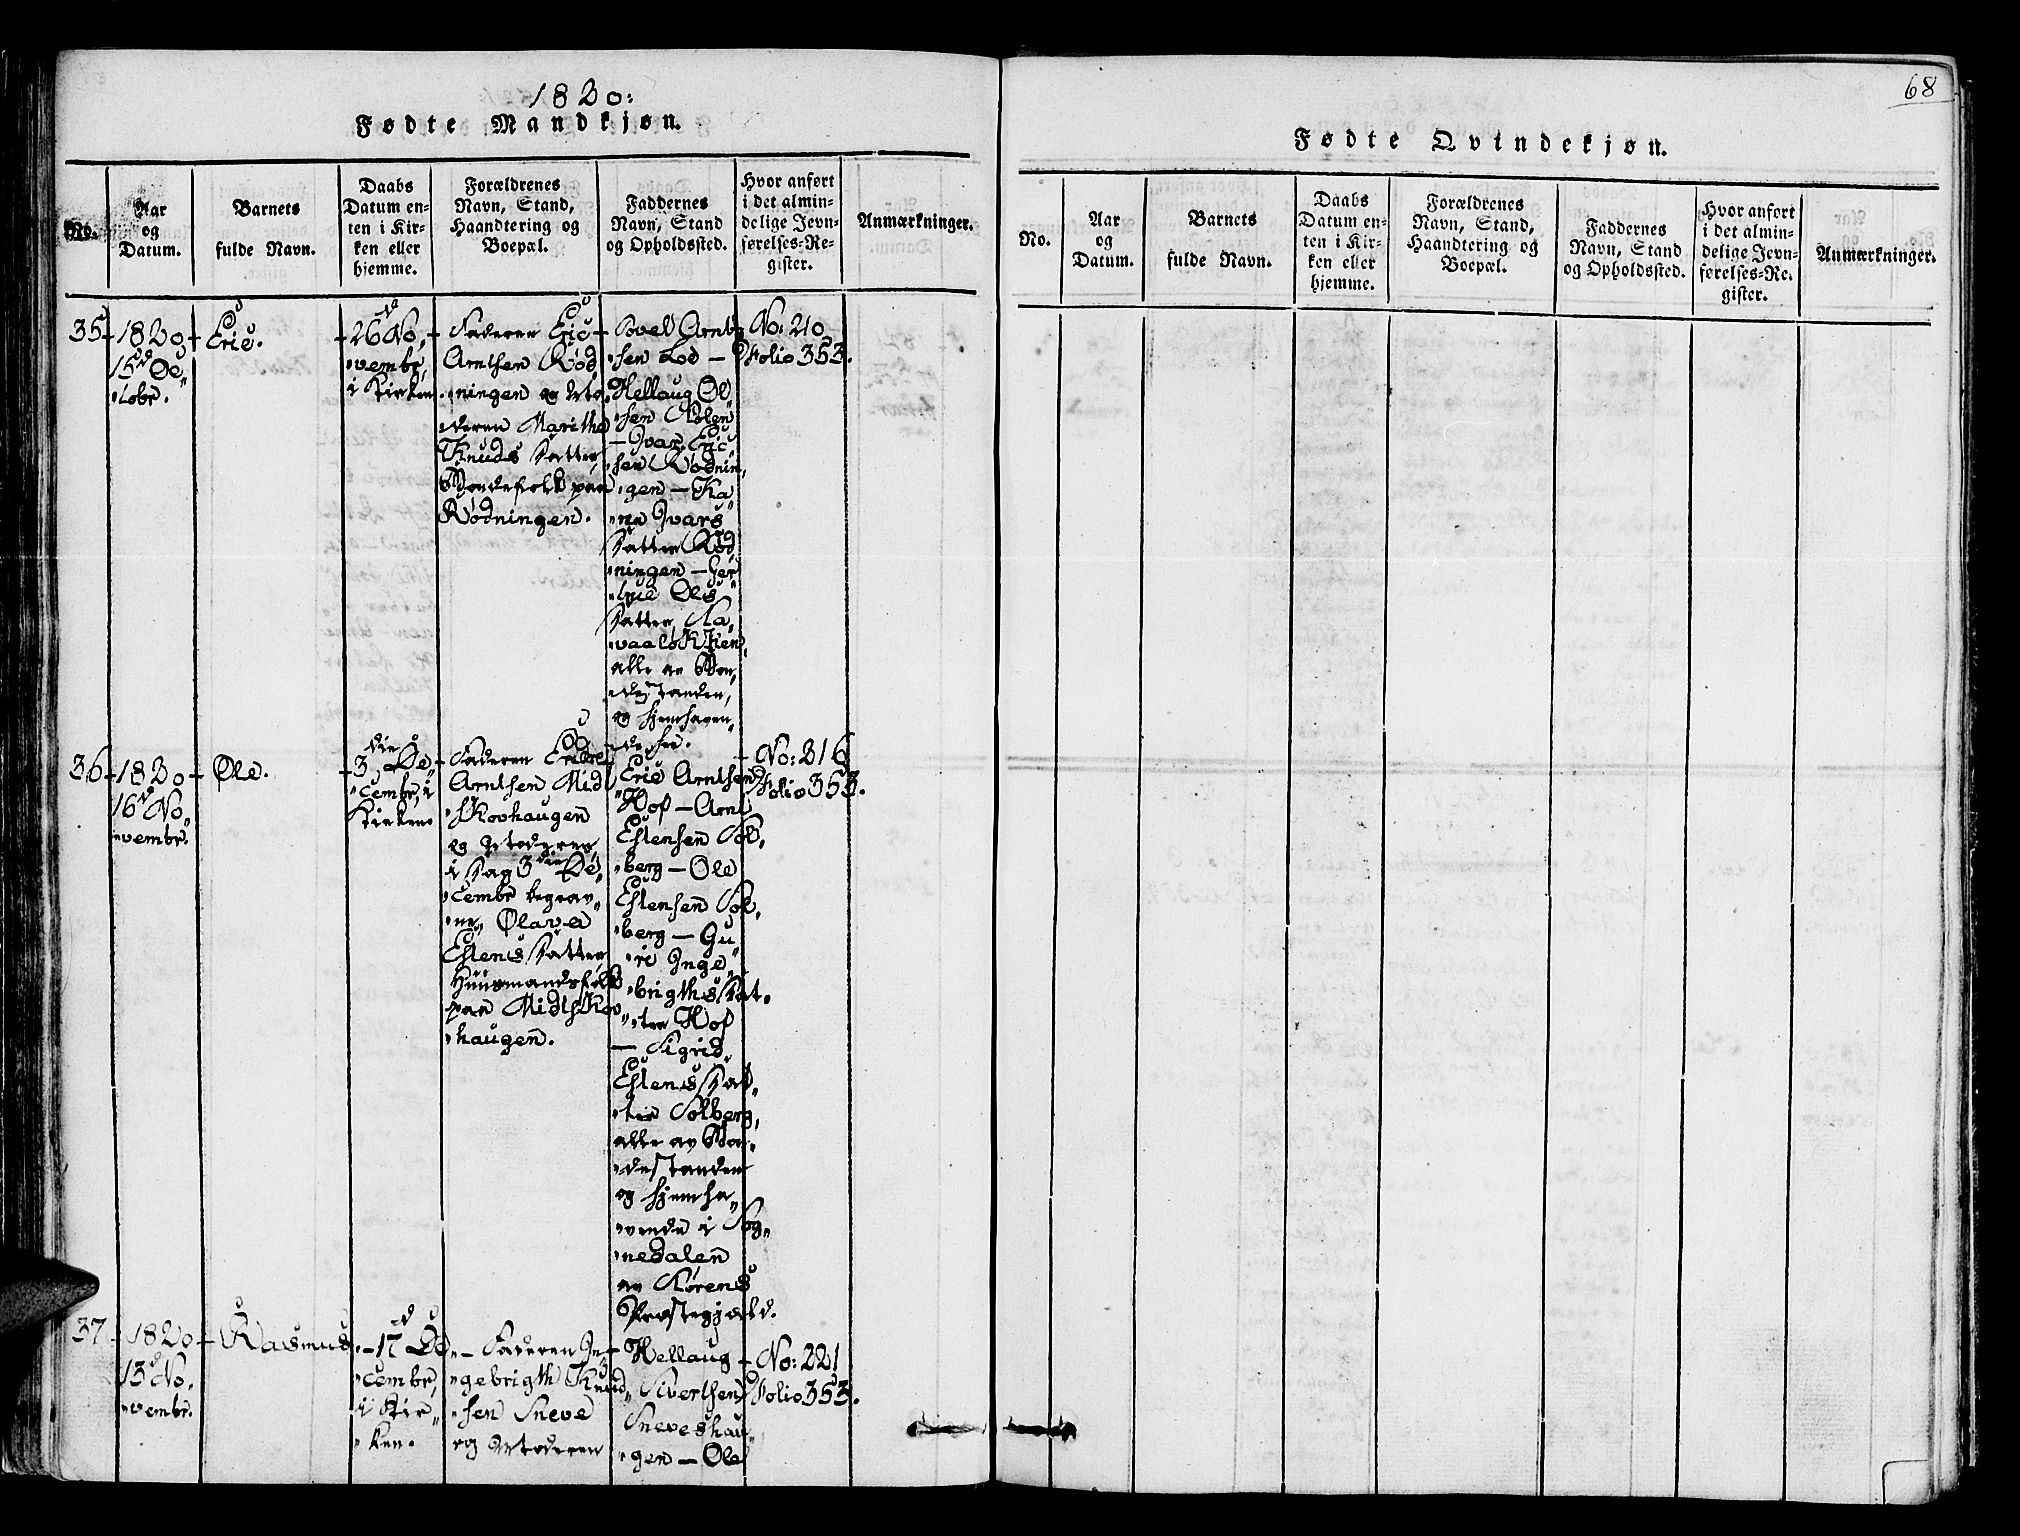 1820:
Fødte Mandkjøn.
No.
Aar
og
Datum.
Barnets
fulde Navn.
Daabs
Datum en-
ten i Kir-
ken eller
hjemme.
Forældrenes
Navn, Stand,
Haandtering og
Boepæl.
Faddernes
Navn, Stand
og Opholdssted.
Hvor anført
i det almin-
delige Jevn-
førelses-Re-
gister.
Anmærkninger.
35
1820
15d Oc„
„tobr.
Eric.
26d No„
„vembr,
i Kirken.
Faderen Eric
Arntsen Rød„
„ningen og Mo„
„deren Marithe
Knuds Datter,
Bondefolk paa
Rødningen.
Arnt„
„sen
Hellaug Ol„
„sen
— Ivar Eric„
„sen Rødnin„
„gen — Ka„
„ri Ivars
Datter Rød„
„ningen —
Ols
Datter
alle av Bon„
„destanden,
og hjemhaven„
„de her.
No: 210
Folio 353.
36
1820
16d No„
„vembr.
Ole.
3die De„
„cembr, i
Kirken
Faderen
Arntsen Midt„
„skovhaugen
og Moderen,
i Dag 3die De„
„cembr begrav„
„ne, Olava
Estens Datter
Huusmandsfolk
paa Midtskov„
„haugen.
Eric Arntsen
Hof — Arnt
Estensen Sol„
„berg — Ole
Estensen Sol„
„berg — Gu„
„ri Inge„
„brigths Dat„
„ter Hof
— Sigrid
Estens Dat„
„ter Solberg,
alle av Bon„
„destanden
og hjemha„
„vende i Sog„
„nedalen
av Størens
Præstegjæld.
No: 216
Folio 353.
37
1820
13d No„
„vembr.
Rasmus
17d De„
„cembr,
i Kir„
„ken.
Faderen In„
„gebrigth Knud„
„sen Sneve
og Moderen
Hellaug
Sivertsen
Sneveshau„
„gen — Ole
No: 221
Folio 353.
68
Fødte Qvindekjøn.
No.
Aar
og
Datum.
Barnets
fulde Navn.
Daabs
Datum en-
ten i Kir-
ken eller
hjemme.
Forældrenes
Navn, Stand,
Haandtering og
Boepæl.
Faddernes
Navn, Stand
og Opholdssted.
Hvor anført
i det almin-
delige Jevn-
førelses-Re-
gister.
Anmærkninger.